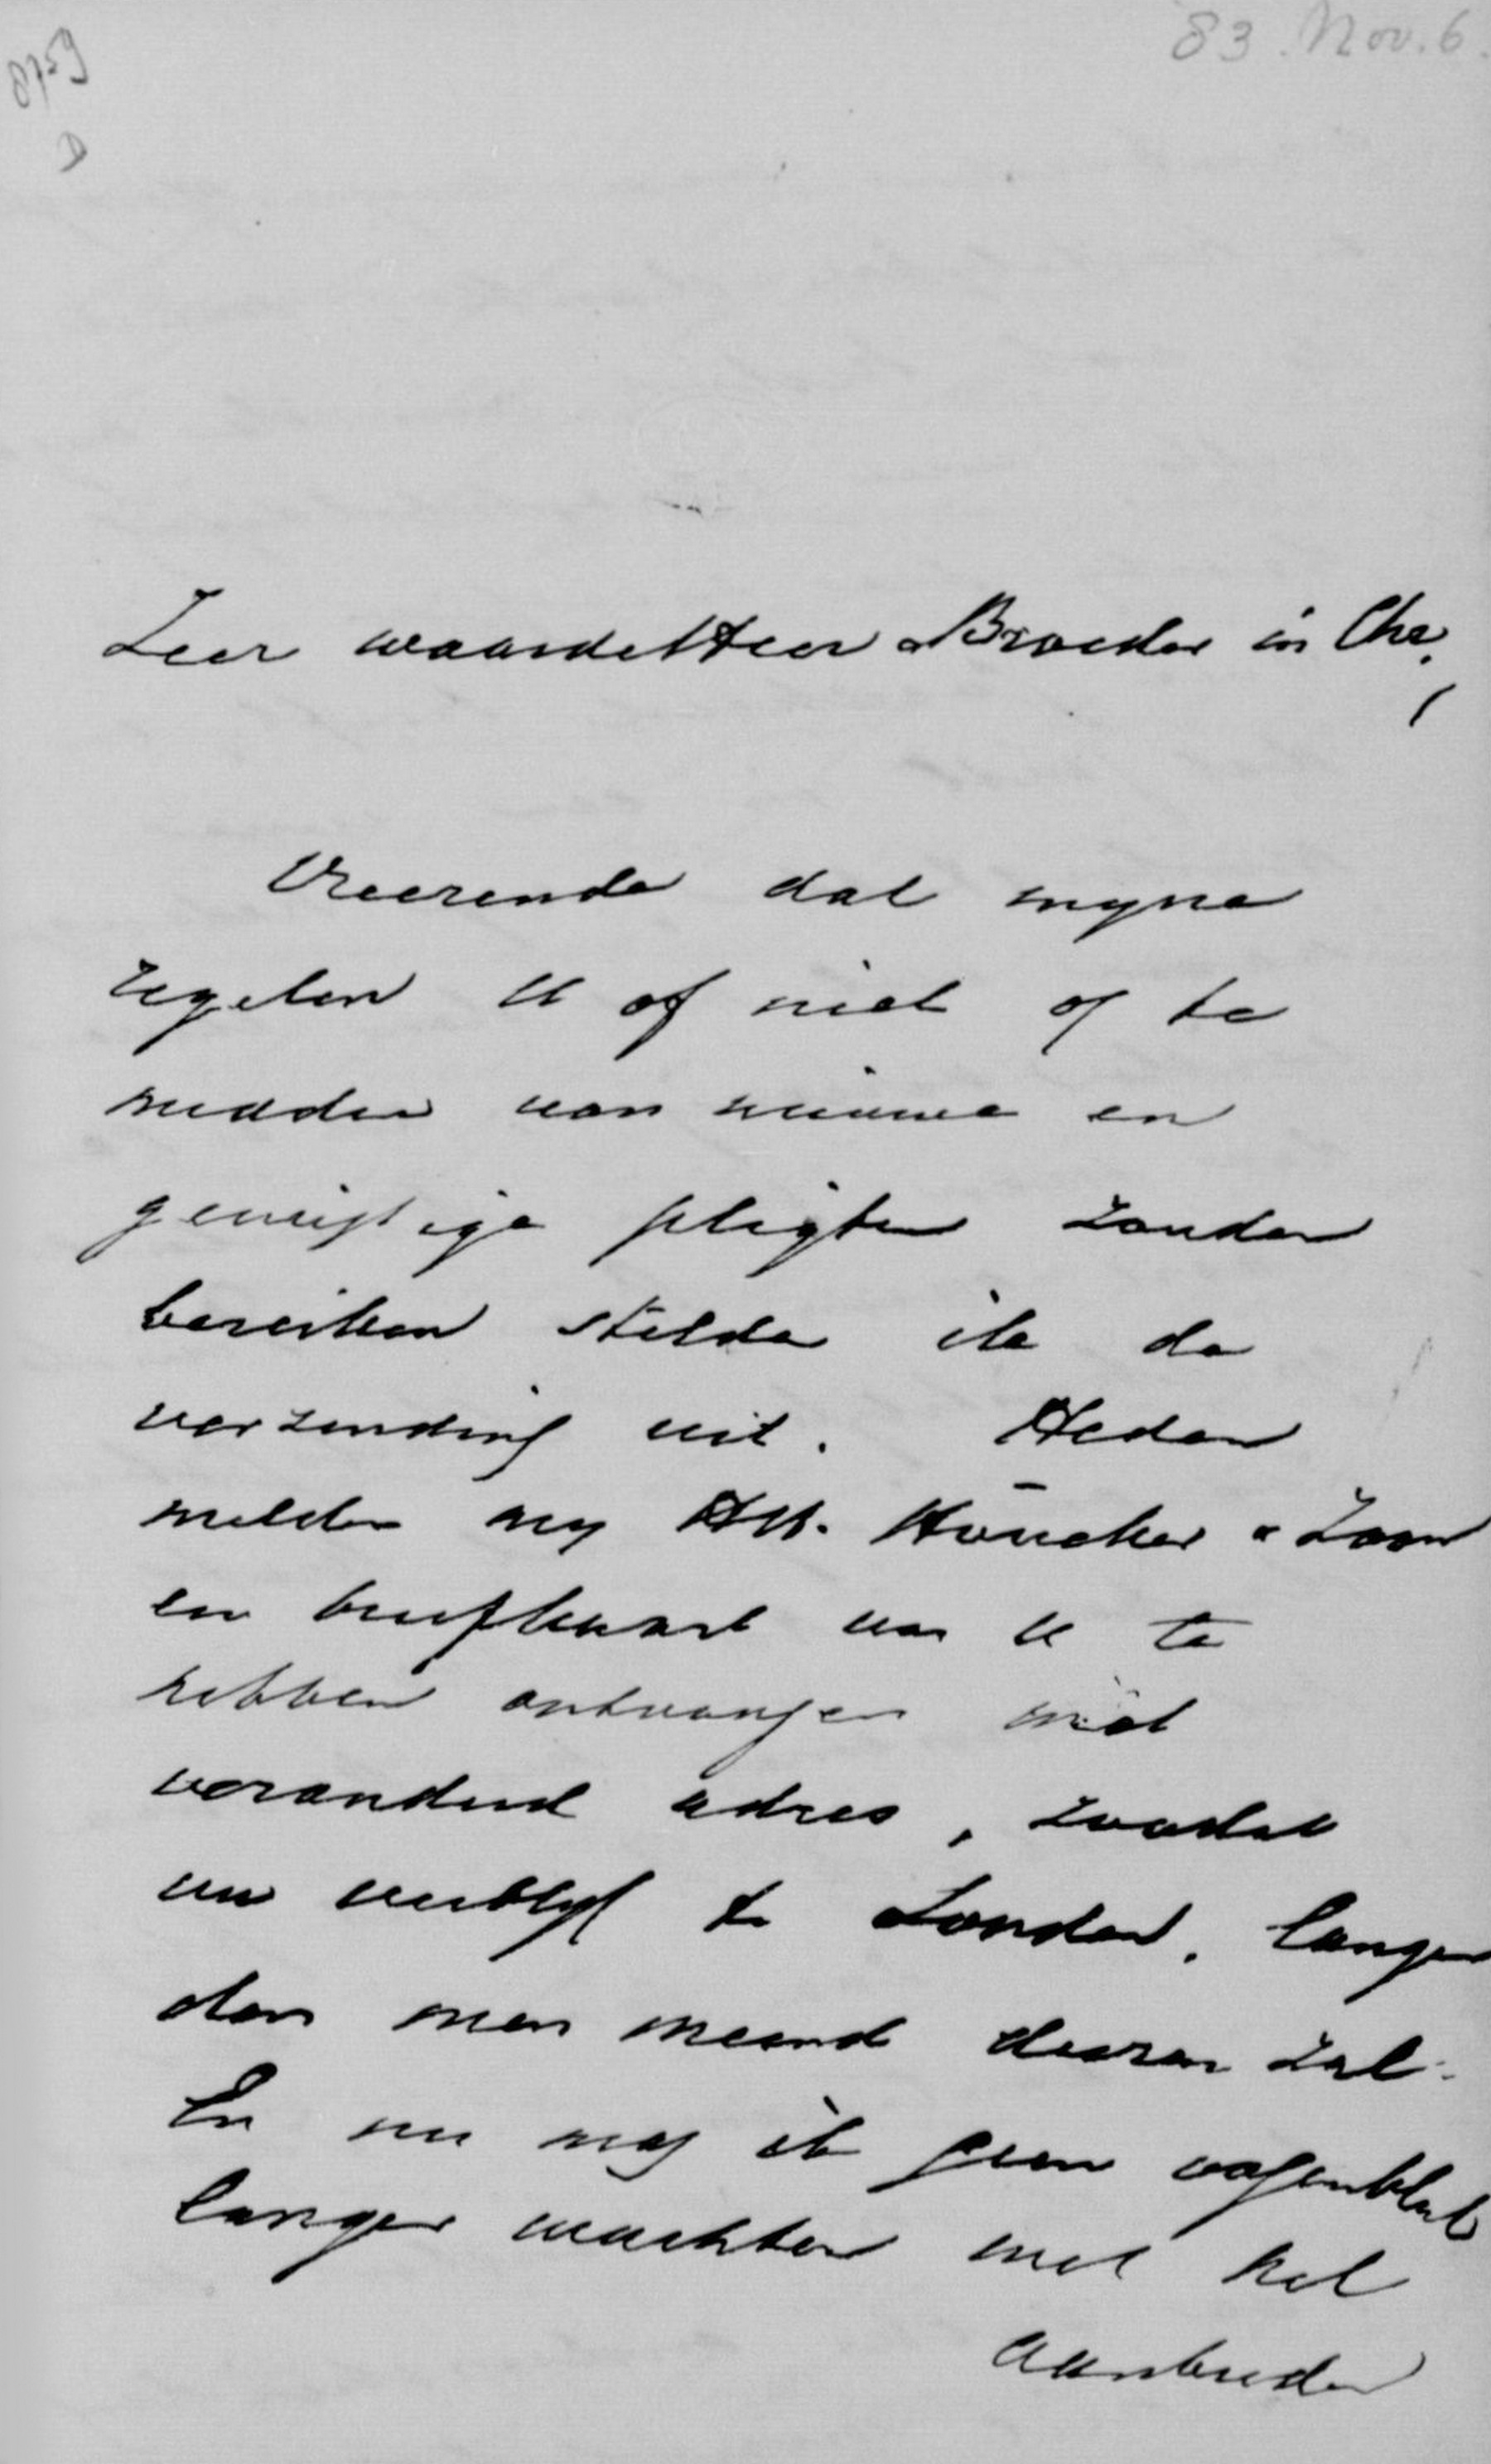 8759
D
83. Nov. 6.
Zeer waarde Heer & Broeder in Chr.,
Vreezende dat myne
regelen U of niet of te
midden van nieuwe en
gewigtige pligten zouden
bereiken stelde ik de
verzending uit. Heden
melden my HH. Höveker & Zoon
en briefkaart van U te
hebben ontvangen met
veranderd adres, zoodat
uw verblyf te Londen, langer
dan men meende duren zal.
En nu mag ik geen oogenblik
langer wachten met het
aanbieden